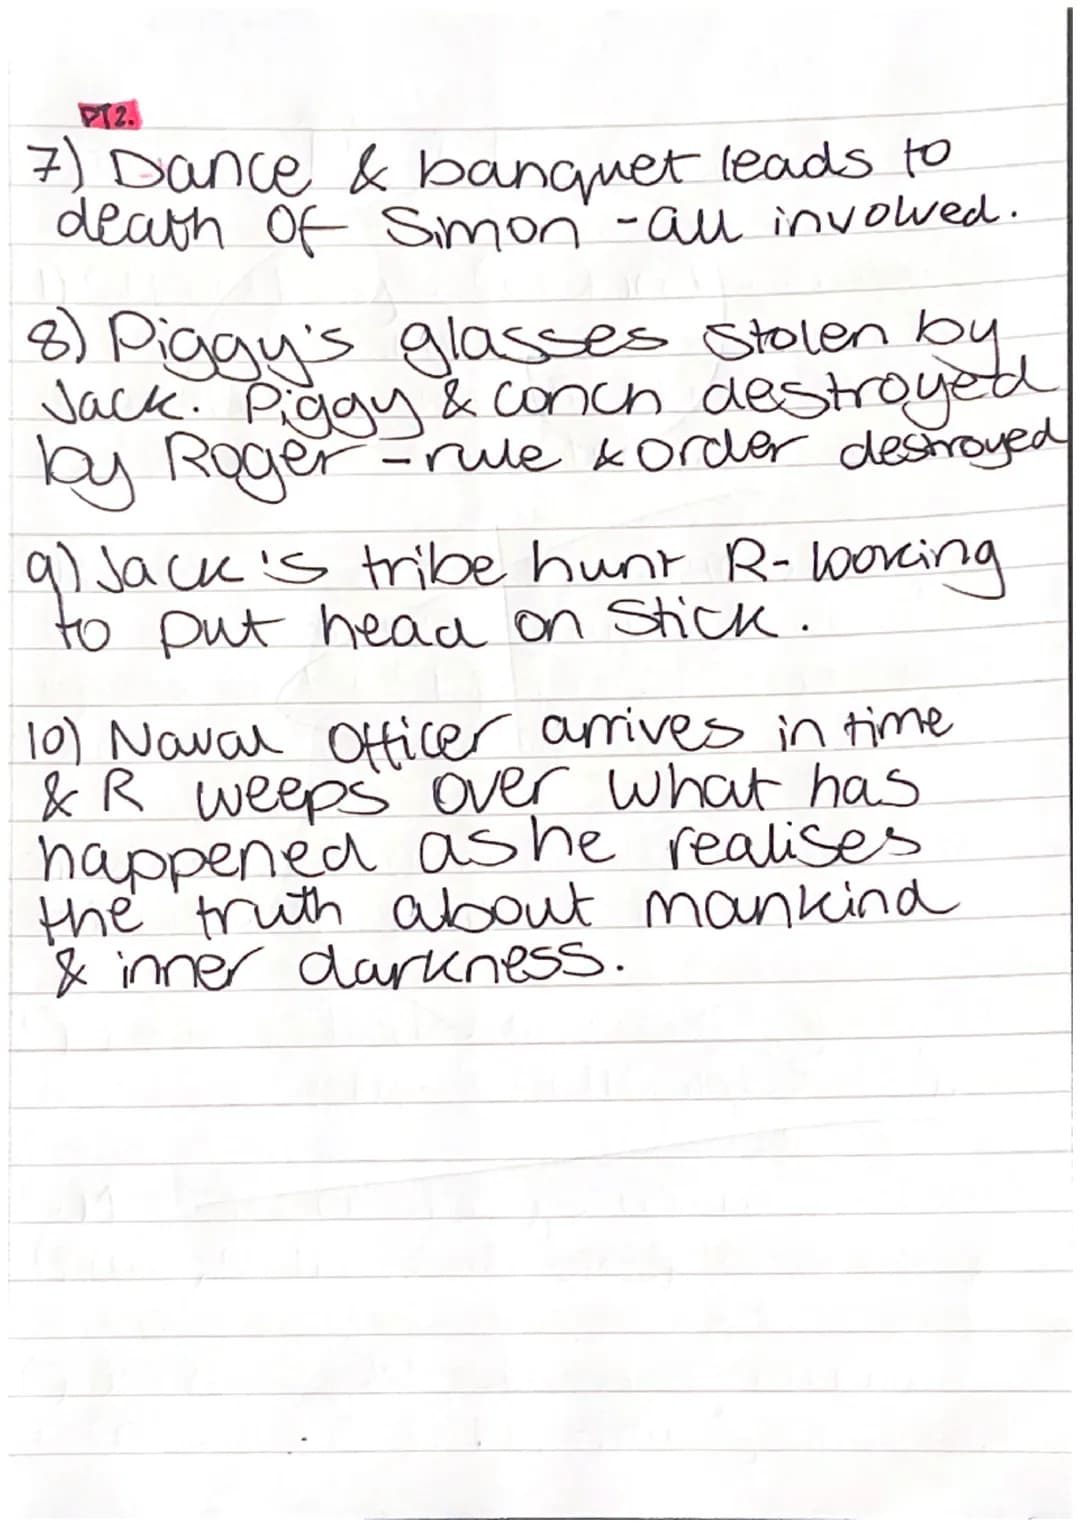 PT2.
7) Dance & banquet leads to
death of Simon - all involved.
8) Piggy's glasses stolen by
Jack. Piggy & conch destroyed
by Roger - rule & order destroyed
9) Jack's tribe hunt R - looking
to put head on stick.
10) Naval officer arrives in time
& R weeps over what has
happened as he realises
the truth about mankind
& inner darkness.